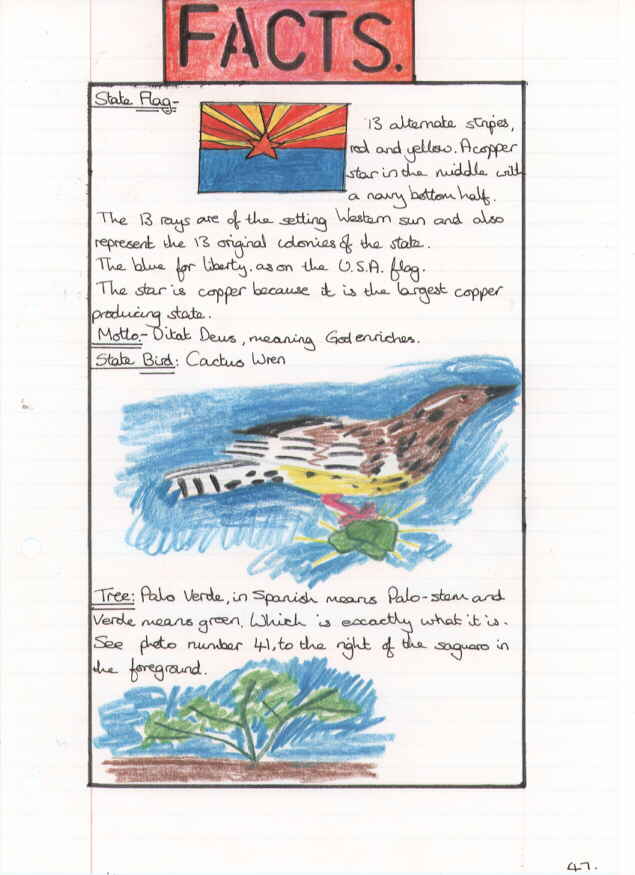 FACTS.
State Flag-
13 alternate stripes,
red and yellow. A copper
star in the middle with
a navy bottom half.
The 13 rays are of the setting Western sun and also
represent the 13 original colonies of the state.
The blue for liberty. as on the U.S.A. flag.
The star is copper because it is the largest copper
producing state.
Motto:- Ditat Deus, meaning God enriches.
State Bird: Cactus Wren
Tree: Palo Verde, in Spanish means Palo-stem and
Verde means green. Which is exactly what it is.
See photo number 41, to the right of the saguaro in
the foreground.
47.